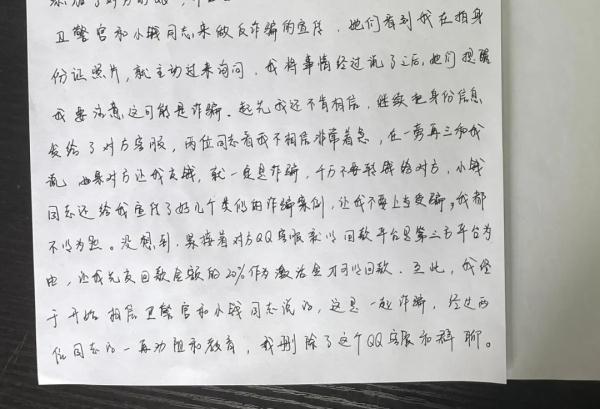 卫警官和小钱同志来做反诈骗的宣传，她们看到我在拍身
份证照片，就主动过来询问，我将事情经过说了之后，她们提醒
我要注意这可能是诈骗。起先我还不肯相信，继续把身份信息
发给了对方客服，两位同志看我不相信非常着急，在一旁再三和我
说，如果对方让我交钱，就一定是诈骗，千万不要转钱给对方，小钱
同志还给我宣传了好几个类似的诈骗案例，让我不要上当受骗，我都
不以为题。没想到，紧接着对方QQ客服就以回款平台是第三方平台为
由，让我先交回款金额的20%作为激活金才可以回款。至此，我终
于开始相信卫警官和小钱同志说的，这是一起诈骗，经过两
位同志的一再劝阻和教育，我删除了这个QQ客服和群聊。